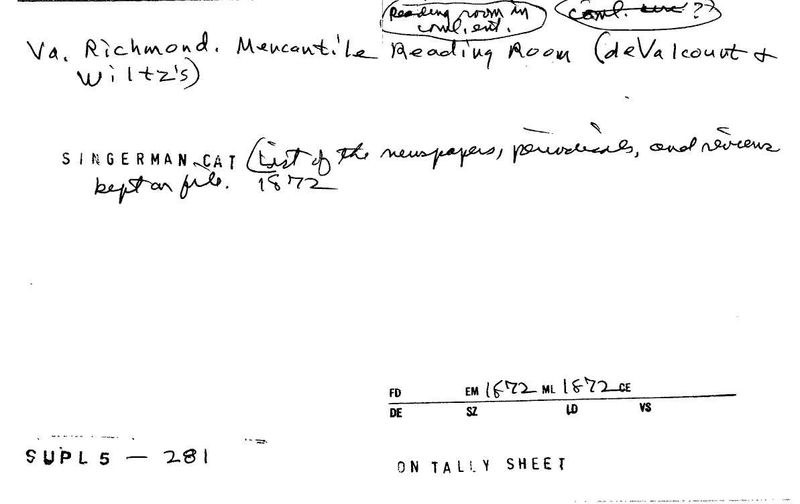 Reading room in
coml. ent.
coml. ?
Va. Richmond. Mercantile Reading Room (deValcourt +
Wiltz's)
SINGERMAN CAT (List of the newspapers, periodicals, and reviews
kept on file. 1872
FD EM 1872 ML 1872 CE
DE SZ LD VS
SUPL 5 — 281
ON TALLY SHEET